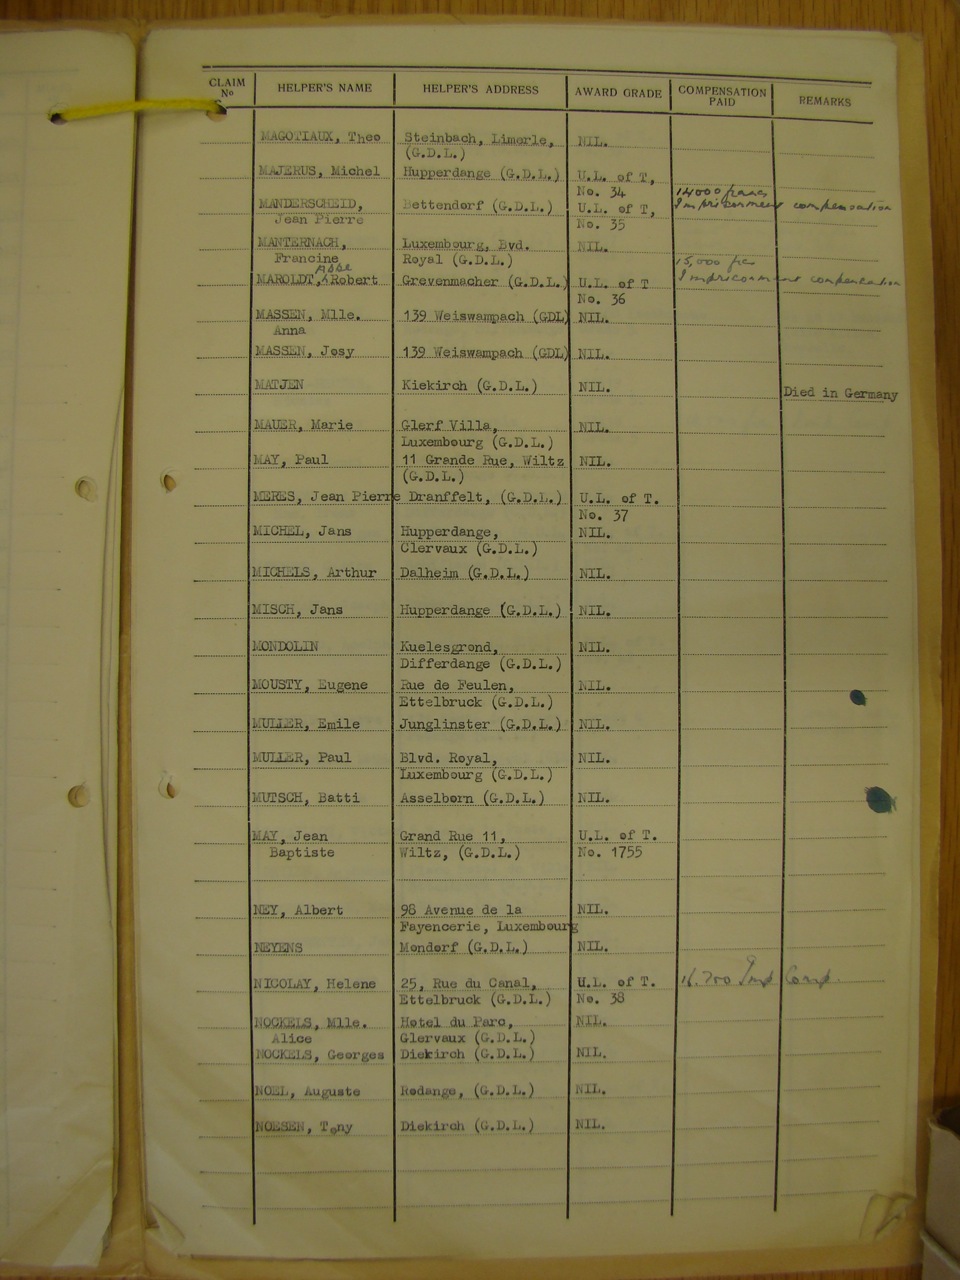 CLAIM No HELPER'S NAME HELPER'S ADDRESS AWARD GRADE COMPENSATION PAID REMARKS
MAGOTIAUX, Theo Steinbach, Limerle, NIL.
(G.D.L.)
MAJERUS, Michel Hupperdange (G.D.L.) U.L. of T,
No. 34 14000 francs
MANDERSCHEID, Bettendorf (G.D.L.) U.L. of T, Imprisonment compensation
Jean Pierre No. 35
MANTERNACH, Luxembourg, Bvd. NIL.
Francine Royal (G.D.L.) 15,000 fcs
Abbe
MAROLDT, Robert Grevenmacher (G.D.L.) U.L. of T Imprisonment compensation
No. 36
MASSEN, Mlle. 139 Weiswampach (GDL) NIL.
Anna
MASSEN, Josy 139 Weiswampach (GDL) NIL.
MATJEN Kiekirch (G.D.L.) NIL. Died in Germany
MAUER, Marie Glerf Villa, NIL.
Luxembourg (G.D.L.)
MAY, Paul 11 Grande Rue, Wiltz NIL.
(G.D.L.)
MERES, Jean Pierre Dranffelt, (G.D.L.) U.L. of T.
No. 37
MICHEL, Jans Hupperdange, NIL.
Clervaux (G.D.L.)
MICHELS, Arthur Dalheim (G.D.L.) NIL.
MISCH, Jans Hupperdange (G.D.L.) NIL.
MONDOLIN Kuelesgrond, NIL.
Differdange (G.D.L.)
MOUSTY, Eugene Rue de Feulen, NIL.
Ettelbruck (G.D.L.)
MULLER, Emile Junglinster (G.D.L.) NIL.
MULLER, Paul Blvd. Royal, NIL.
Luxembourg (G.D.L.)
MUTSCH, Batti Asselborn (G.D.L.) NIL.
MAY, Jean Grand Rue 11, U.L. of T.
Baptiste Wiltz, (G.D.L.) No. 1755
NEY, Albert 98 Avenue de la NIL.
Fayencerie, Luxembourg
NEYENS Mondorf (G.D.L.) NIL.
NICOLAY, Helene 25, Rue du Canal, U.L. of T. 16.700 Imp Comp.
Ettelbruck (G.D.L.) No. 38
NOCKELS, Mlle. Hotel du Parc, NIL.
Alice Glervaux (G.D.L.)
NOCKELS, Georges Diekirch (G.D.L.) NIL.
NOEL, Auguste Rodange, (G.D.L.) NIL.
NOESEN, Tony Diekirch (G.D.L.) NIL.